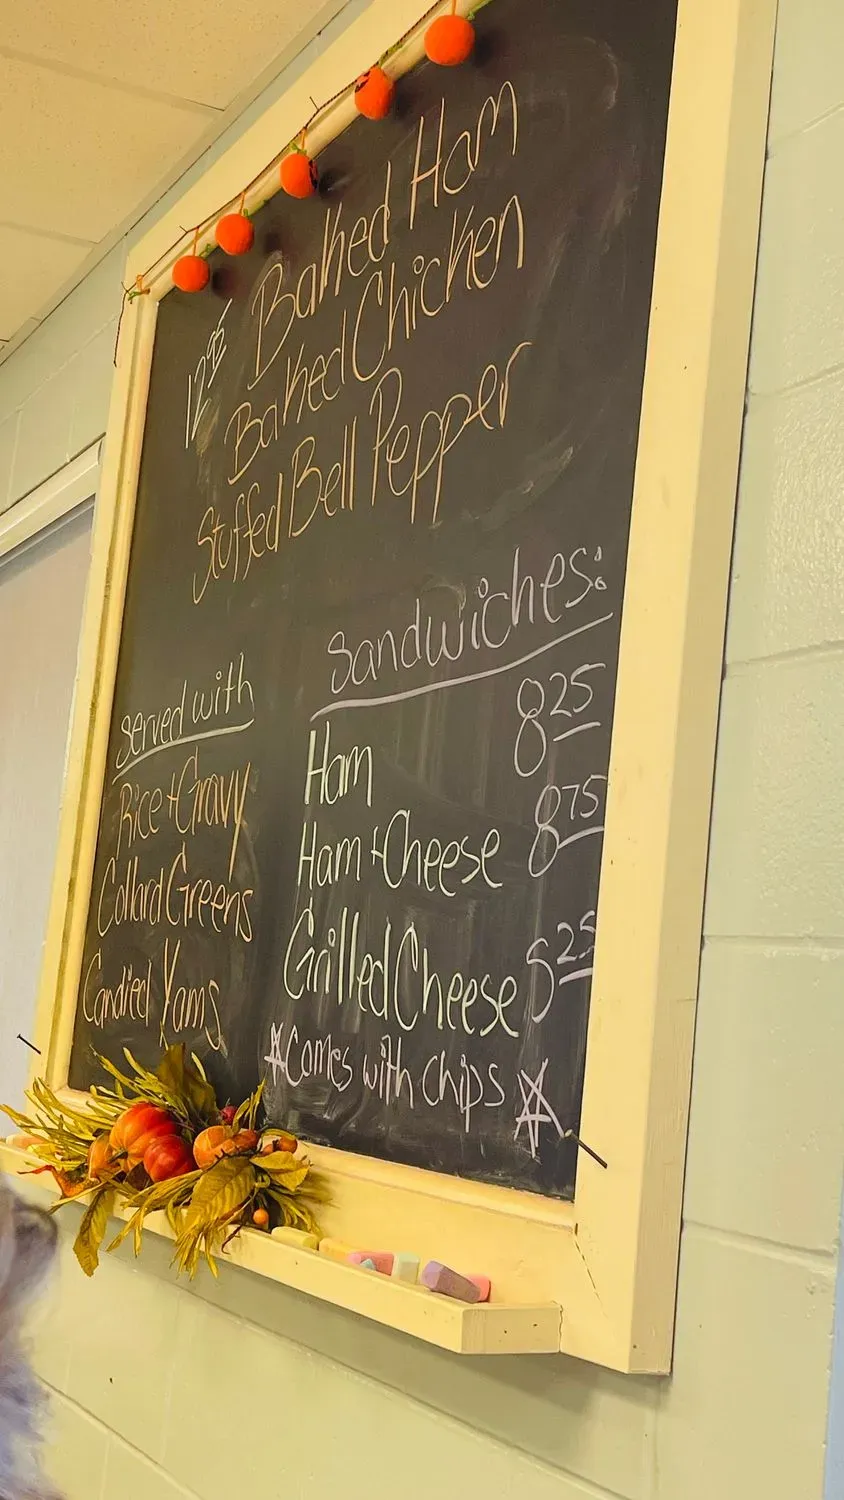 12.95 Baked Ham
Baked Chicken
Stuffed Bell Pepper
served with
Rice + Gravy
Collard Greens
Candied Yams
Sandwiches:
Ham 8.25
Ham + Cheese 8.75
Grilled Cheese 5.25
*Comes with chips*